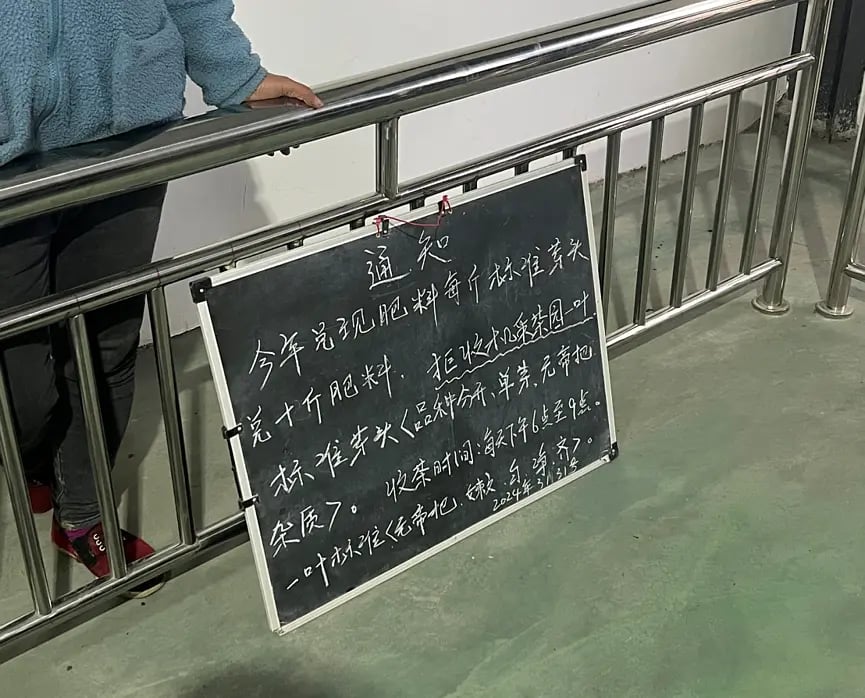 通知
今年兑现肥料每斤标准芽头
兑十斤肥料. 拒收机采茶园一叶.
标准芽头<品种分开、单芽、无带把
杂质>。 收茶时间:每天下午6点至9点。
一叶标准<无带把.嫩.匀.净.齐>。
2024年3月31号